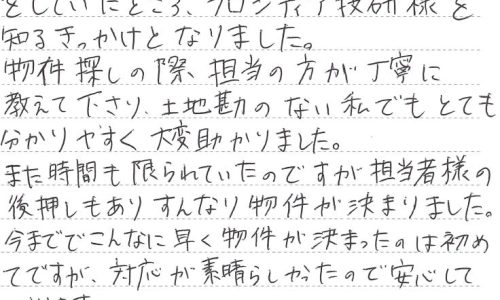 をしていたところ、フロンティア技研様を
知るきっかけとなりました。
物件探しの際、担当の方が丁寧に
教えて下さり、土地勘のない私でもとても
分かりやすく大変助かりました。
また時間も限られていたのですが担当者様の
後押しもありすんなり物件が決まりました。
今まででこんなに早く物件が決まったのは初め
てですが、対応が素晴らしかったので安心して